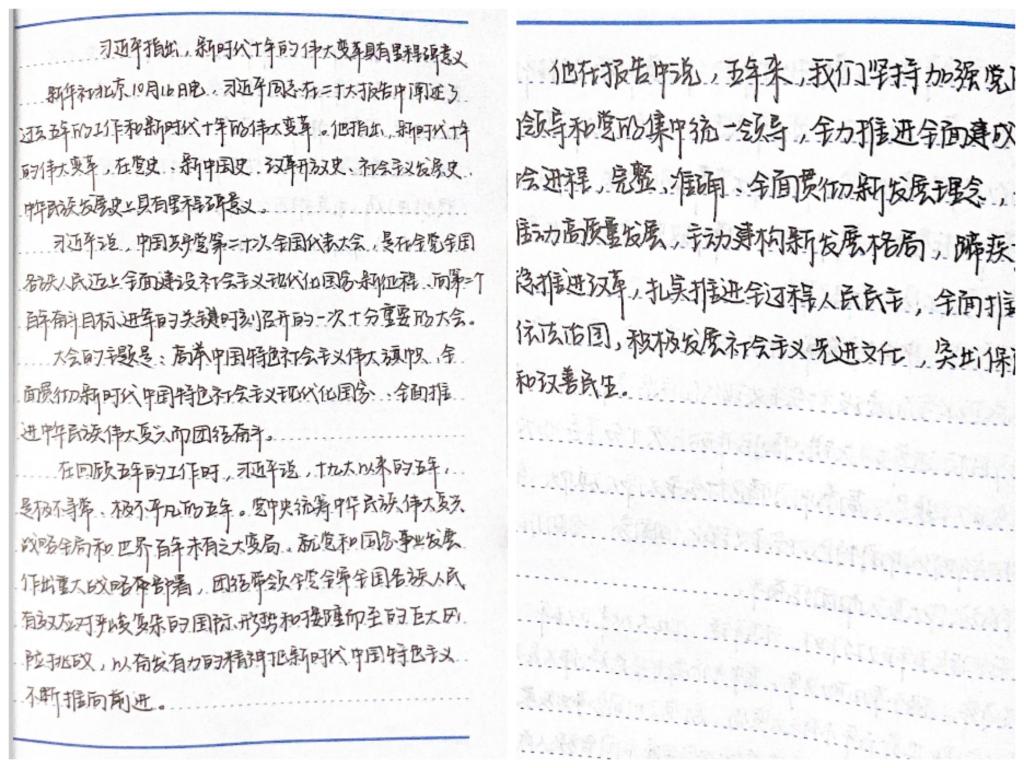 习近平指出，新时代十年的伟大变革具有里程碑意义
新华社北京10月16日电，习近平同志在二十大报告中阐述了
过去五年的工作和新时代十年的伟大变革。他指出，新时代十年
的伟大变革，在党史、新中国史、改革开放史、社会主义发展史、
中华民族发展史上具有里程碑意义。
习近平说，中国共产党第二十次全国代表大会，是在全党全国
各族人民迈上全面建设社会主义现代化国家新征程、向第二个
百年奋斗目标进军的关键时刻召开的一次十分重要的大会。
大会的主题是：高举中国特色社会主义伟大旗帜，全
面贯彻新时代中国特色社会主义现代化国家、全面推
进中华民族伟大复兴而团结奋斗。
在回顾五年的工作时，习近平说，十九大以来的五年，
是极不寻常、极不平凡的五年。党中央统筹中华民族伟大复兴
战略全局和世界百年未有之大变局，就党和国家事业发展
作出重大战略布部署，团结带领全党全军全国各族人民
有效应对严峻复杂的国际形势和接踵而至的巨大风
险挑战，以奋发有力的精神把新时代中国特色主义
不断推向前进。
他在报告中说，五年来，我们坚持加强党
领导和党的集中统一领导，全力推进全面建成
会进程，完整、准确、全面贯彻新发展理念，
动高质量发展，主动建构新发展格局，蹄疾
推进改革，扎实推进全过程人民民主，全面推进
依法治国，积极发展社会主义先进文化，突出保
和改善民生。